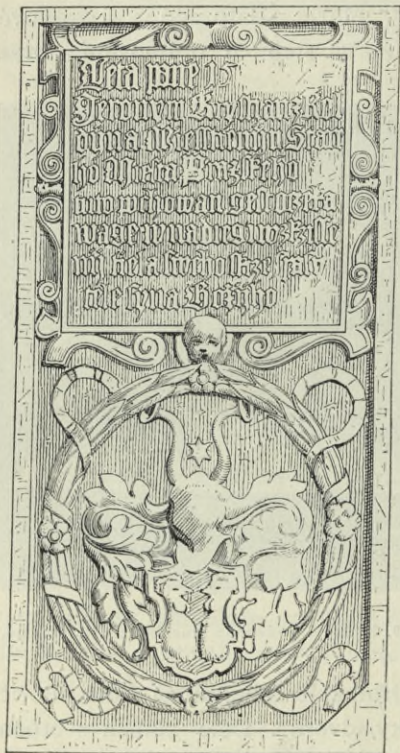 Leta panie 15
Jeronym Krystian z Kol
dyn a Miesstienin Stare
ho Miesta Prazskeho
tuto pochowan gest oczeka
wage w nadiegi wzkrisse
nij tiela sweho skrze spasy
tele Syna Božijho